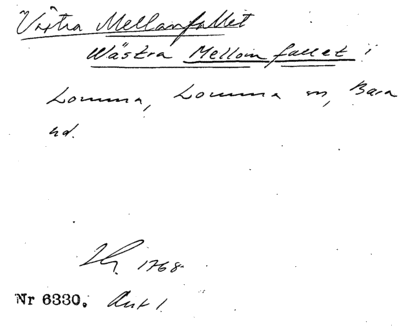 Västra Mellanfallet
Wästra Mellom fallet i
Lomma, Lomma sn, Bara
hd.
1768
Nr 6330. Akt 1.